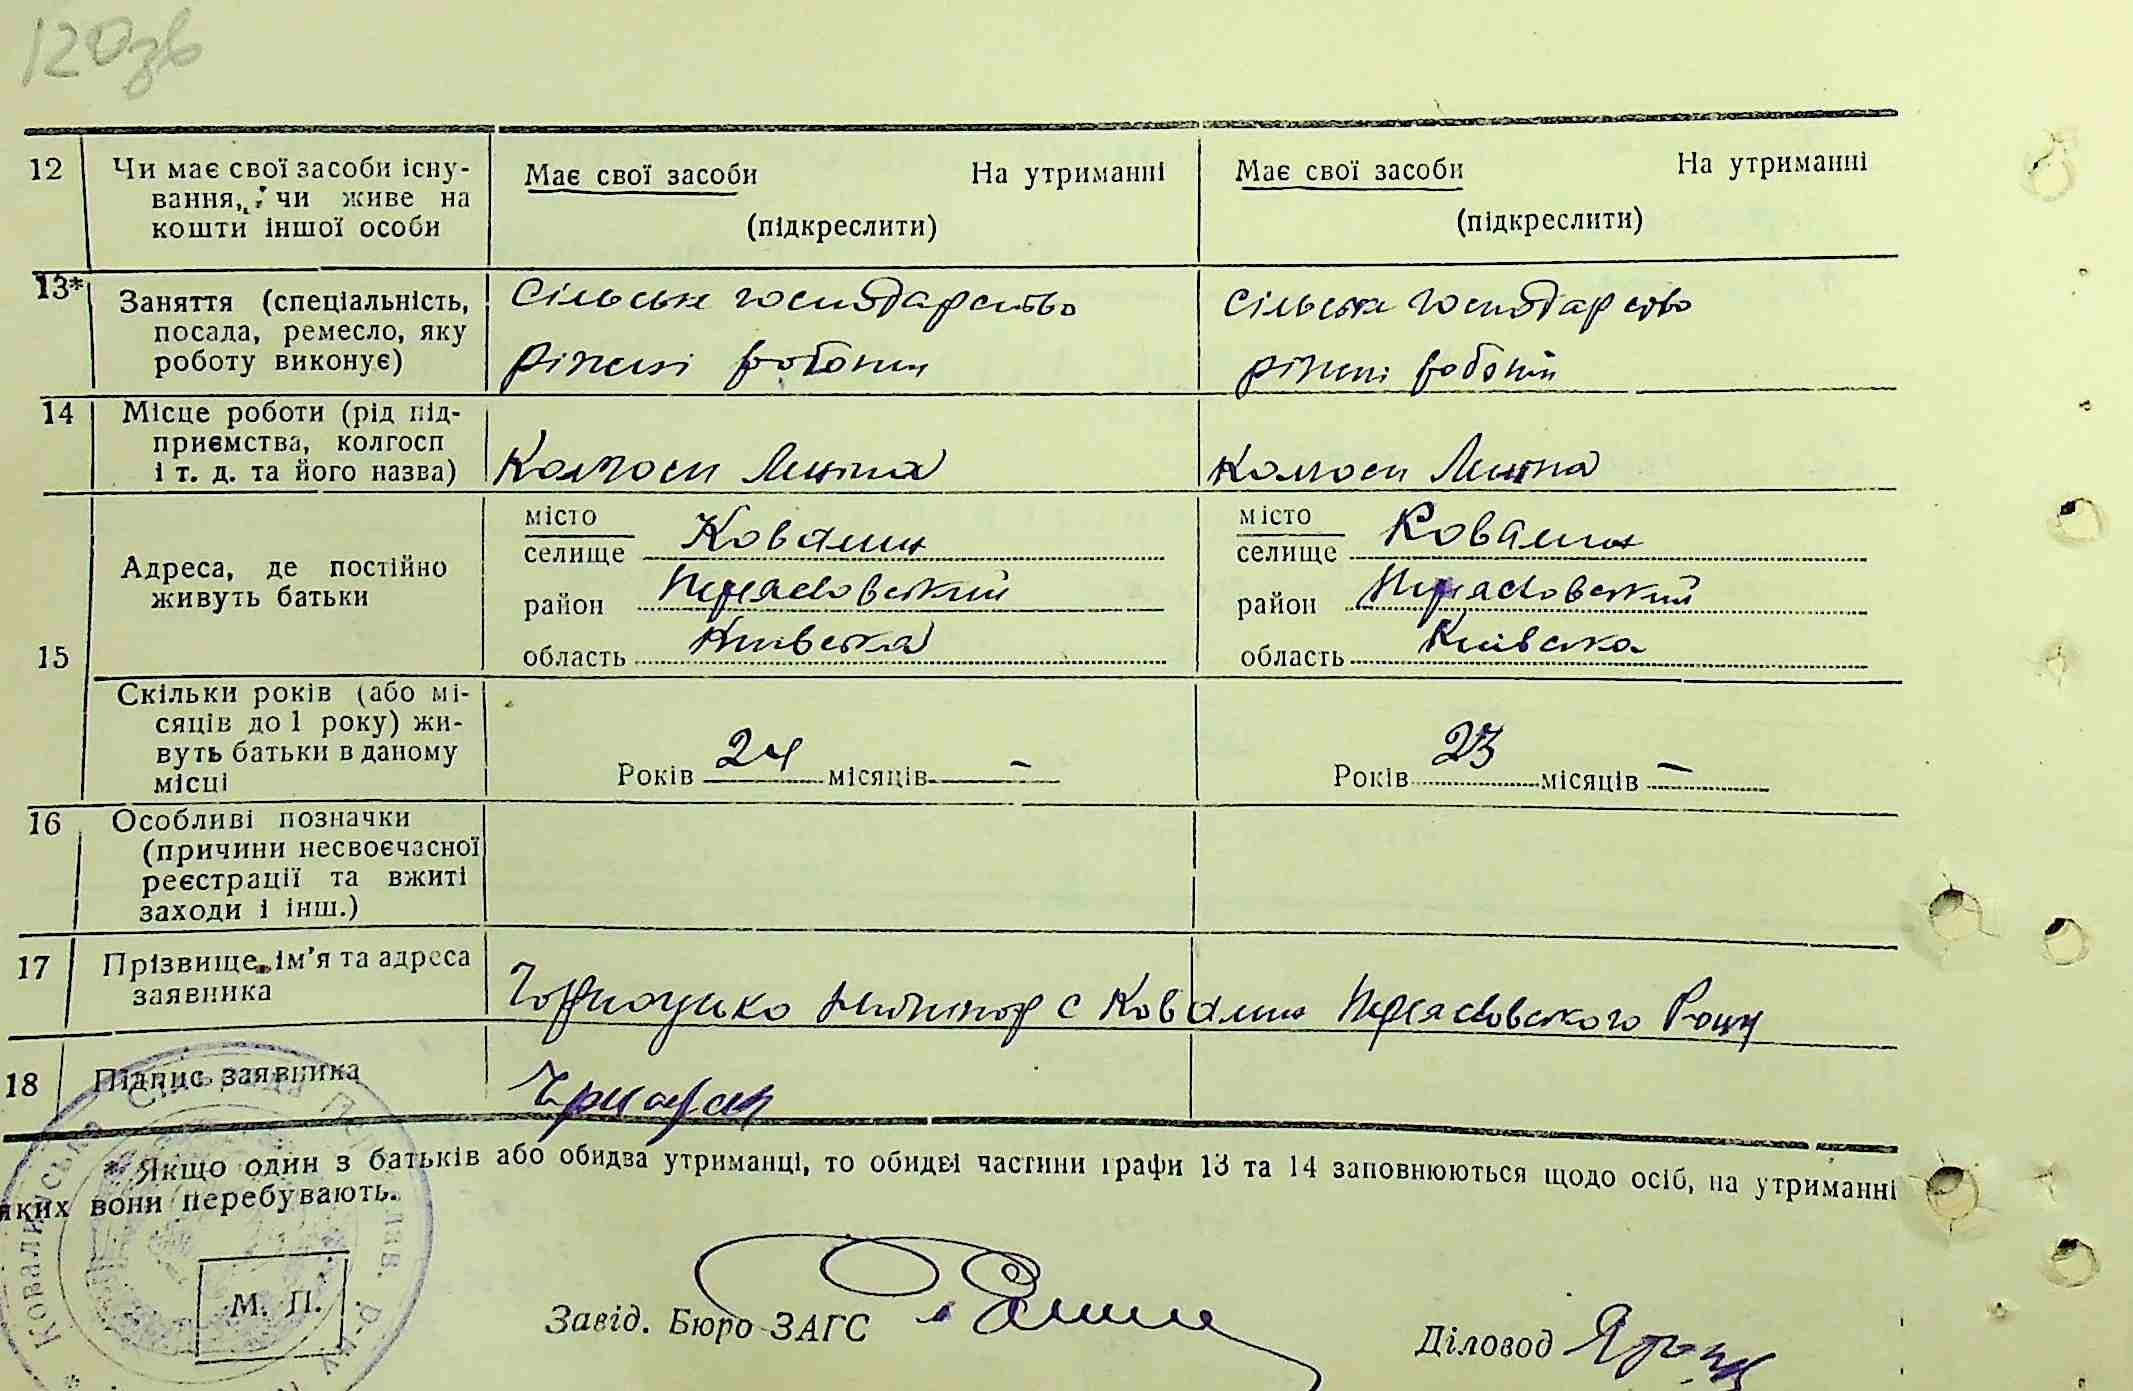 120зв
12
Чи має свої засоби існу-
вання, чи живе на
кошти іншої особи
Має свої засоби На утриманні
(підкреслити)
Має свої засоби На утриманні
(підкреслити)
13*
Заняття (спеціальність,
посада, ремесло, яку
роботу виконує)
Сільське господарство
різні роботи
Сільське господарство
різні роботи
14
Місце роботи (рід під-
приємства, колгосп
і т. д. та його назва)
Колгосп Леніна
Колгосп Леніна
15
Адреса, де постійно
живуть батьки
місто
селище Ковалин
район Переясловський
область Київська
місто
селище Ковалин
район Переясловський
область Київська
Скільки років (або мі-
сяців до 1 року) жи-
вуть батьки в даному
місці
Років 24 місяців –
Років 23 місяців –
16
Особливі позначки
(причини несвоєчасної
реєстрації та вжиті
заходи і інш.)
17
Прізвище, ім'я та адреса
заявника
с Ковалин Переясловського
18
Підпис заявника
* Якщо один з батьків або обидва утриманці, то обидві частини графи 13 та 14 заповнюються щодо осіб, на утриманні
яких вони перебувають.
Ковалинська Сільрада
М. П.
Завід. Бюро ЗАГС
Діловод